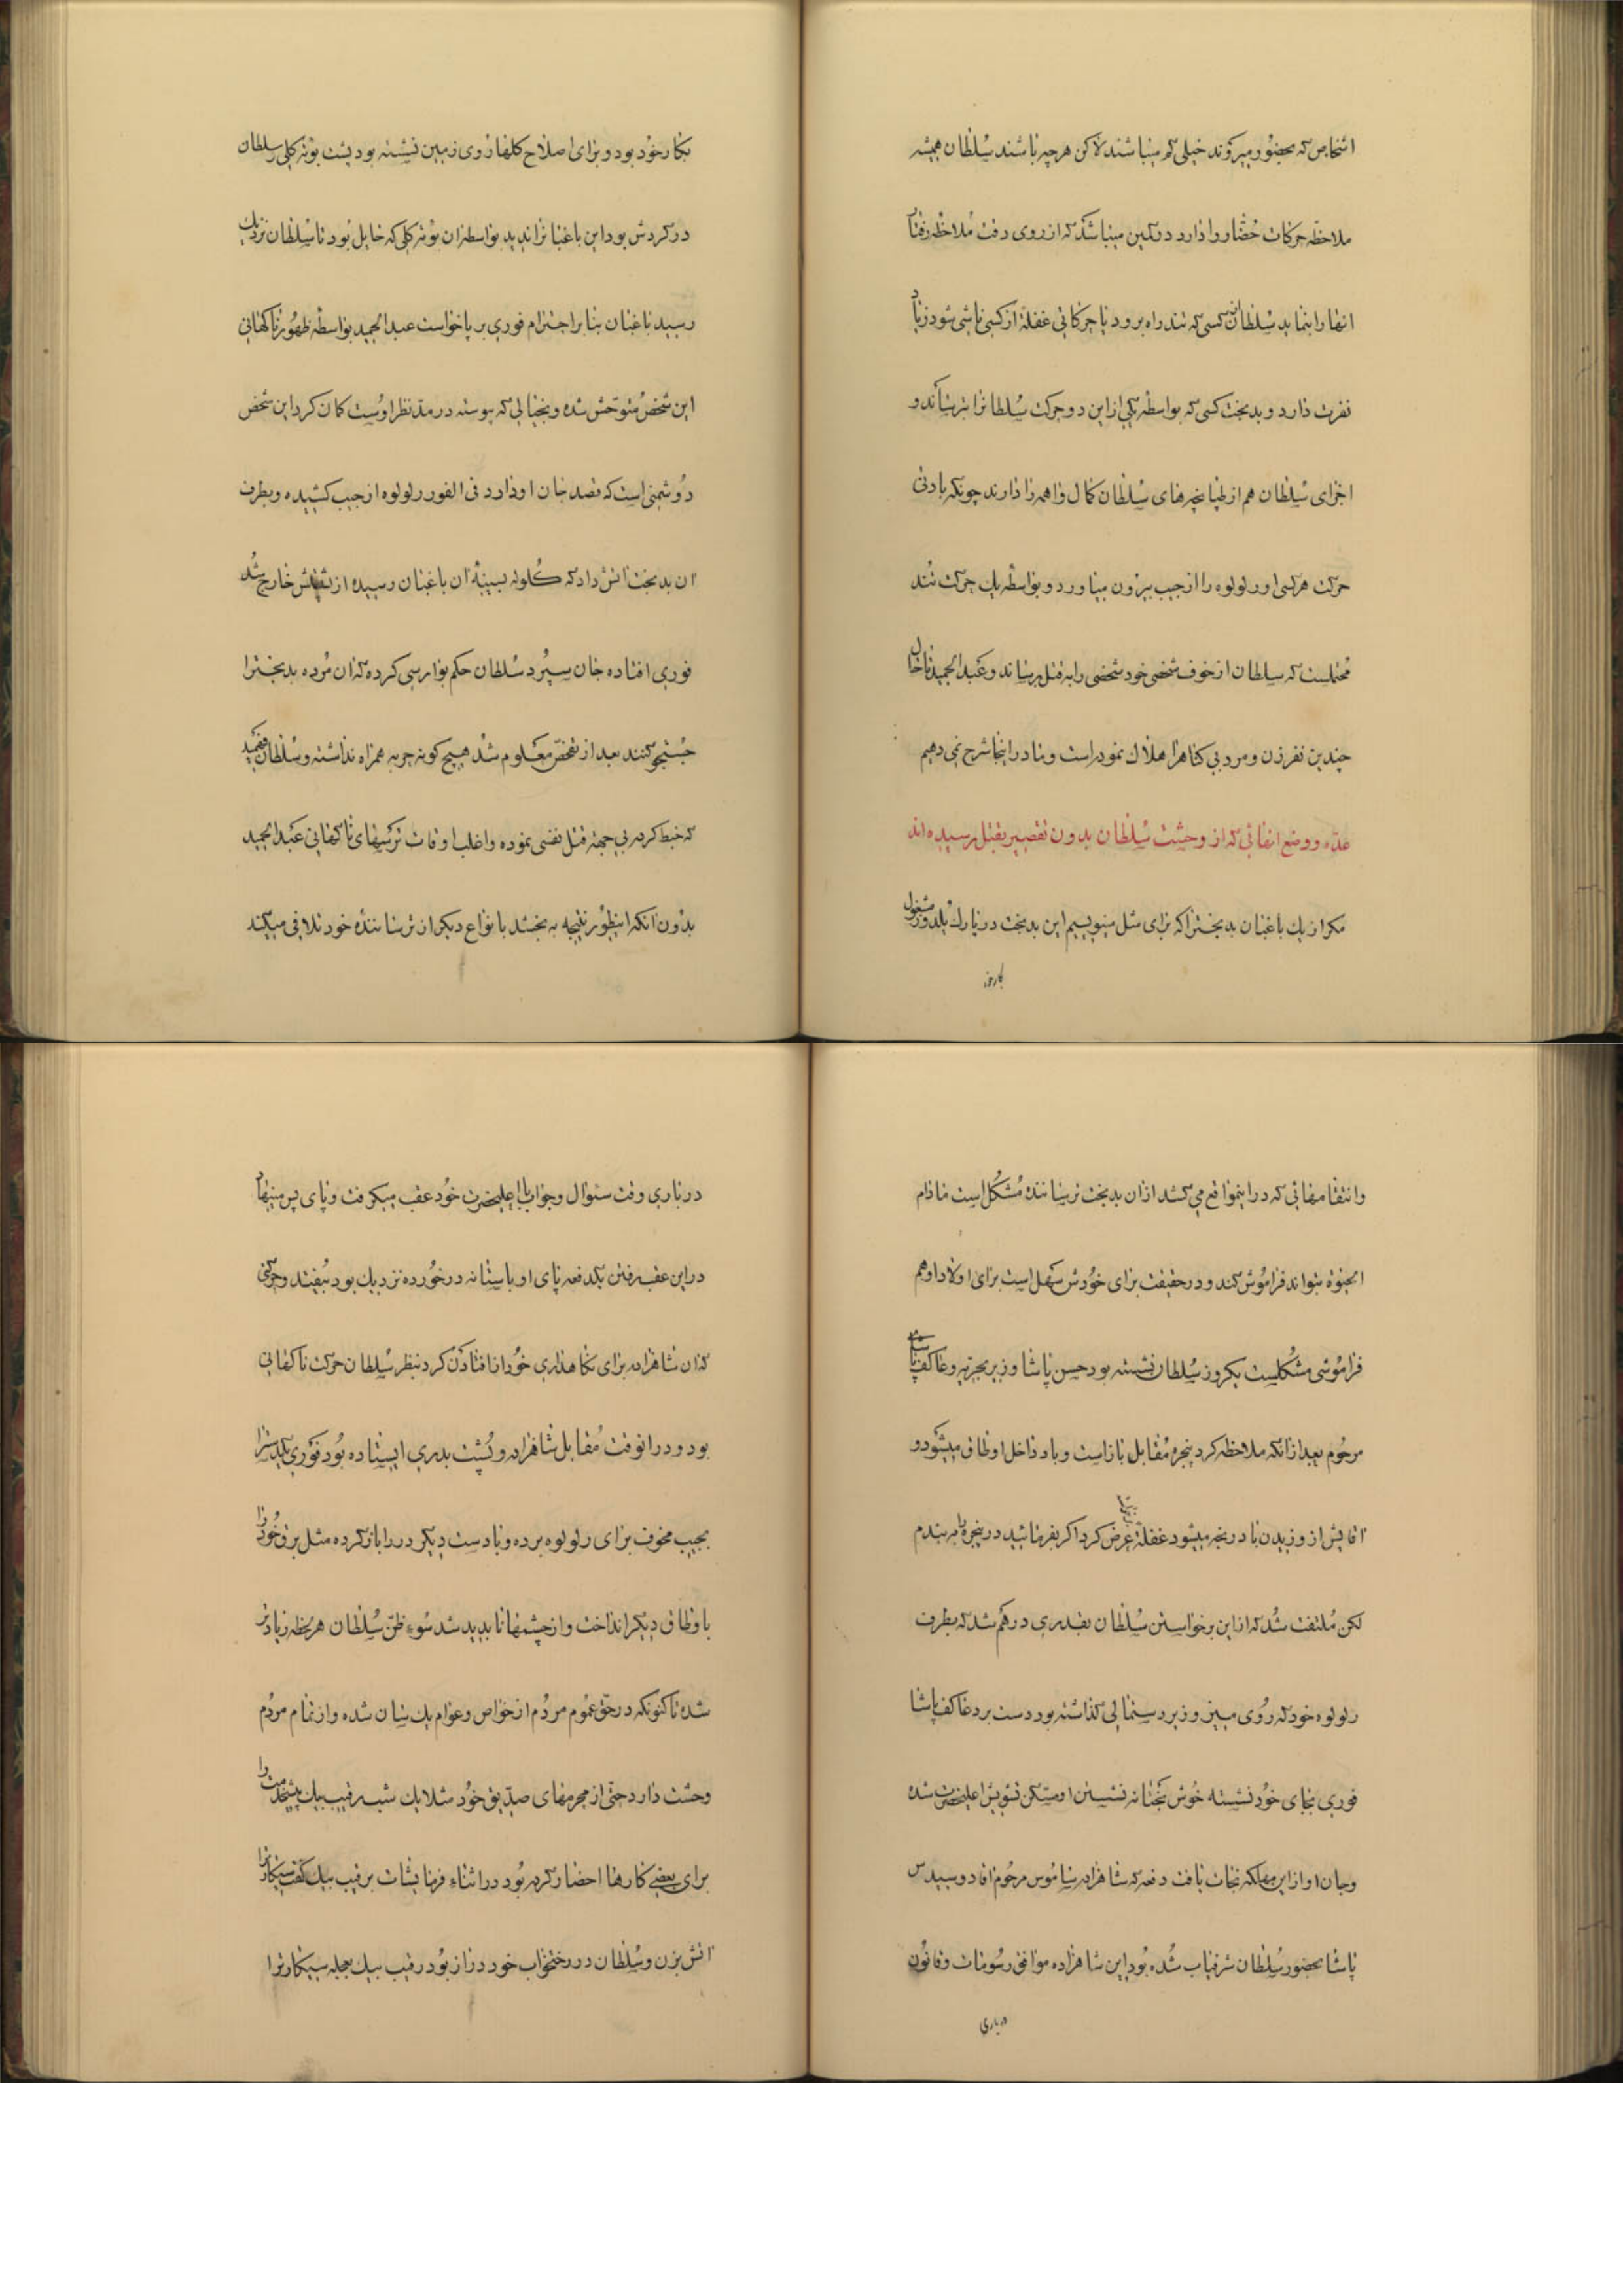 اشخاصی که بحضور میروند خیلی کم میباشند لاکن هرچه باشند سلطان همیشه
ملاحظه حرکات حضار را دارد در کمین میباشد که از روی دقت ملاحظه رفتار
انها را بنماید سلطان از کسی که تند راه برود یا حرکاتی غفلة از کسی ناشی شود زیاد
نفرت دارد و بدبخت کسی که بواسطه یکی از این دو حرکت سلطانرا بترساند و
اجزای سلطان هم از طپانچه های سلطان کمال واهمه را دارند چونکه بادنی
حرکت هر کسی او رلولوه را از جیب بیرون میاورد و بواسطه یک حرکت تند
محتملست که سلطان از خوف شخصی خود شخصی را به قتل برساند و عبدالحمید تا حال
چندین نفر زن و مرد بی کناهرا هلاک نموده است و ما در اینجا شرح نمی دهیم
عده و وضع انهائی که از وحشت سلطان بدون تقصیر بقتل رسیده اند
مکر از یک باغبان بدبختراکه برای مثل مینویسیم این بدبخت در پارک یلدوز مشغول
بکار خود
بکار خود بود و برای اصلاح کلها روی زمین نشسته بود پشت بوته کلی و سلطان
در کردش بود این باغبانرا ندید بواسطه ان بوته کلی که حایل بود تا سلطان نزدیک
رسید باغبان بنا بر احترام فوری بر پا خواست عبدالحمید بواسطه ظهور ناکهانی
این شخص متوحش شده و بخیالی که پیوسته در مد نظر اوست کمان کرد این شخص
دوشمنی است که قصد جان او دارد فی الفور رلولوه از جیب کشیده و بطرف
ان بدبخت اتش داد که کلوله بسینه ان باغبان رسیده از پشتش خارج شد
فوری افتاده جان سپرد سلطان حکم بوارسی کرده که ان مرده بدبخترا
جستجو کنند بعد از تفحص معلوم شد هیچ کونه حربه همراه نداشته و سلطان فهمید
که خبط کرده بی جهة قتل نفسی نموده و اغلب اوقات ترسهای ناکهانی عبدالحمید
بدون انکه اینطور نتیجه به بخشد بانواع دیکر از ترساننده خود تلافی میکند
و انتقامهائی که در اینمواقع می کشد از ان بدبخت ترساننده مشکل است مادام
الحیوة بتواند فراموش کند و در حقیقت برای خودش سهل است برای اولاد او هم
فراموشی مشکلست یکروز سلطان نشسته بود حسن پاشا وزیر بحریه و عاکف پاشای
مرحوم بعد از انکه ملاحظه کرد پنجره مقابل باز است و باد داخل اوطاق میشود و
اقایش از وزیدن باد رنجه میشود غفلة عرض کرد اکر بفرمائید در پنجره را به بندم
لکن ملتفت شد که از این برخواستن سلطان بقدری درهم شد که بطرف
رلولوه خود که روی میز و زیر دستمالی کذاشته بود دست برد عاکف پاشا
فوری بجای خود نشسته خوش بختانه نشستن او مسکن تشویش اعلیحضرت شده
و جان او از این مهلکه نجات یافت دفعه که شاهزاده ساموس مرحوم
پاشا بحضور سلطان شرفیاب شده بود این شاهزاده موافق رسومات و قانون
درباری
درباری وقت سئوال و جواب با اعلیحضرت خود عقب میکرفت و پای پس مینهاد
در این عقب رفتن یکدفعه پای او باستانه در خورده نزدیک بود بیفتد و حرکتی
که ان شاهزاده برای نکاهداری خود از افتادن کرد بنظر سلطان حرکت ناکهانی
بود و در انوقت مقابل شاهزاده و پشت بدری ایستاده بود فوری یکدسترا
بجیب مخوف برای رلولوه برده و با دست دیکر در را باز کرده مثل برق خود را
باوطاق دیکر انداخت و از چشمها ناپدید شد سوء ظن سلطان هر لحظه زیادتر
شده تا کنونکه در حق عموم مردم از خواص و عوام یک سان شده و از تمام مردم
وحشت دارد حتی از محرمهای صدیق خود مثلا یک شب رقیب بیک پیشخدمت را
برای بعضی کارها احضار کرده بود در اثناء فرمایشات برقیب بیک کفت سیکار ترا
اتش بزن و سلطان در رختخواب خود دراز بود رقیب بیک بعجله سیکارترا